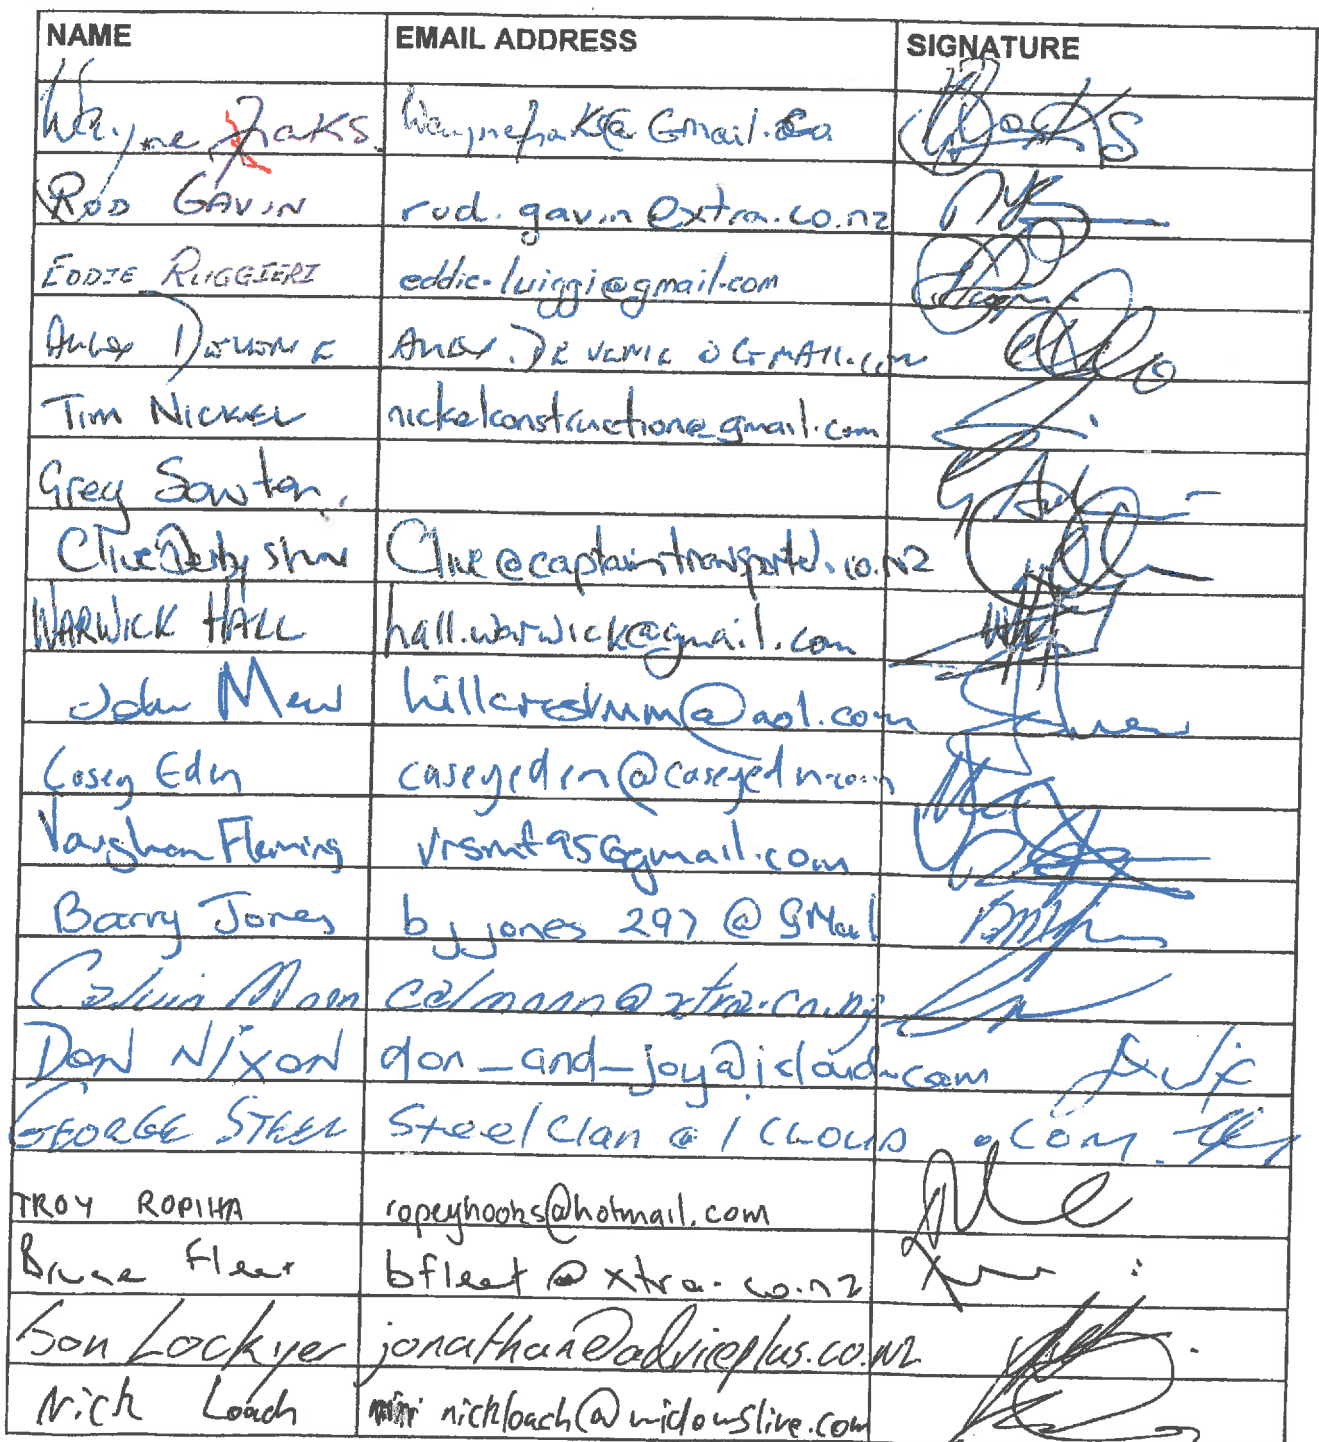 NAME EMAIL ADDRESS SIGNATURE
Wayne @ Gmail.
ROD GAVIN rod.gavin@xtra.co.nz
EDDIE RUGGIERI eddie.luiggi@gmail.com
GMAIL.com
TIM NICKEL nickelconstruction@gmail.com
Greg Sowton.
Clive Derbyshire Clive@captaintransportltd.co.nz
WARWICK HALL hall.warwick@gmail.com
John Mew @aol.com
Casey Eden caseyeden@caseyeden.com
Vaughan Fleming vrsmt95@gmail.com
Barry Jones bjjones 297 @ GMail
Calvin Moon calmoon@xtra.co.nz
DON NIXON don_and_joy@icloud.com
GEORGE STEEL Steelclan@ICLOUD.COM
TROY ROPIHA ropeyhooks@hotmail.com
Bruce Fleet bfleet@xtra.co.nz
Jon Lockyer jonathan@adviceplus.co.nz
Nick Loach nickloach@widowslive.com